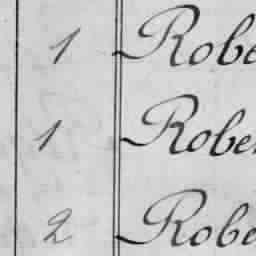 1 Robe
1 Rober
2 Robe